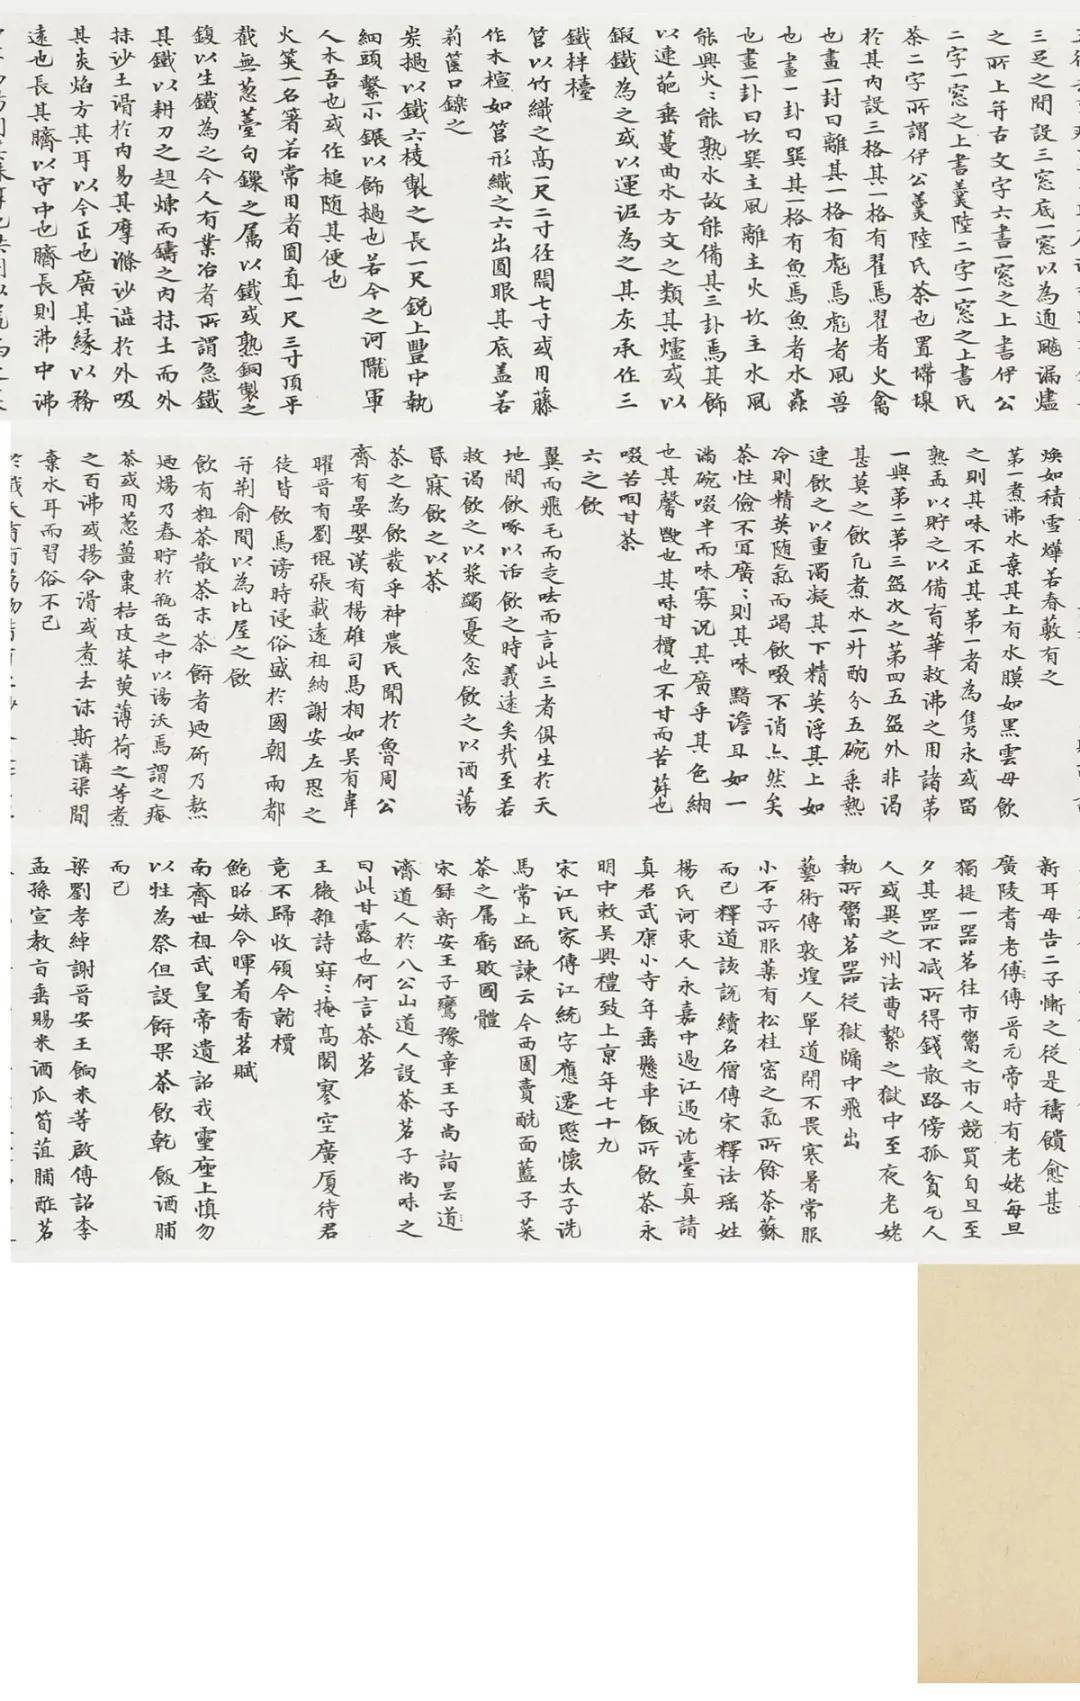 三足之間設三窓底一窓以為通飈漏燼
之所上并古文字六書一窓之上書伊公
二字一窓之上書羹陸二字一窓之上書氏
茶二字所謂伊公羹陸氏茶也置墆㙞
於其內設三格其一格有翟焉翟者火禽
也畫一封曰離其一格有彪焉彪者風兽
也畫一卦曰巽其一格有魚焉魚者水蟲
也畫一卦曰坎巽主風離主火坎主水風
能興火火能熟水故能備其三卦焉其飾
以連葩垂蔓曲水方文之類其爐或以
鍛鐵為之或以運泥為之其灰承作三
鐵柈檯
筥以竹織之高一尺二寸徑闊七寸或用藤
作木楦如筥形織之六出圓眼其底盖若
莉篋口鑠之
炭撾以鐵六棱製之長一尺銳上豐中執
細頭繫一小𨰿以飾撾也若今之河隴軍
人木吾也或作槌随其便也
火筴一名箸若常用者圓直一尺三寸頂平
截無葱薹句鏁之属以鐵或熟銅製之
鍑以生鐵為之今人有業冶者所謂急鐵
其鐵以耕刀之趄煉而鑄之內抹土而外
抹沙土滑於內易其摩滌沙澁於外吸
其炎焰方其耳以令正也廣其緣以務
遠也長其臍以守中也臍長則沸中沸
煥如積雪燁若春藪有之
第一煮沸水棄其上有水膜如黑雲母飲
之則其味不正其第一者為雋永或留
熟盂以貯之以備育華救沸之用諸第
一與第二第三盌次之第四五盌外非渴
甚莫之飲凡煮水一升酌分五碗乘熱
連飲之以重濁凝其下精英浮其上如
冷則精英随氣而竭飲啜不消亦然矣
茶性儉不宜廣廣則其味黯澹且如一
滿碗啜半而味寡況其廣乎其色緗
也其馨𣣓也其味甘檟也不甘而苦荈也
啜苦咽甘茶
六之飲
翼而飛毛而走呿而言此三者俱生於天
地間飲啄以活飲之時義遠矣哉至若
救渴飲之以浆蠲憂忿飲之以酒蕩
昬寐飲之以茶
茶之為飲發乎神農氏聞於魯周公
齊有晏嬰漢有楊雄司馬相如吳有韋
曜晉有劉琨張載遠祖納謝安左思之
徒皆飲焉滂時浸俗盛於國朝兩都
并荆俞間以為比屋之飲
飲有粗茶散茶末茶餅者廼斫乃熬
廼煬乃舂貯於瓶缶之中以湯沃焉謂之痷
茶或用葱薑棗桔皮茱萸薄荷之等煮
之百沸或揚令滑或煮去沫斯溝渠間
棄水耳而習俗不已
新耳母告二子慚之從是禱饋愈甚
廣陵耆老傅傅晉元帝時有老姥每旦
獨提一器茗往市鬻之市人競買自旦至
夕其器不减所得錢散路傍孤貧乞人
人或異之州法曹縶之獄中至夜老姥
執所鬻茗器從獄牖中飛出
藝術傳敦煌人單道開不畏寒暑常服
小石子所服藥有松桂蜜之氣所餘茶蘇
而已釋道該說續名僧傳宋釋法瑶姓
楊氏河東人永嘉中過江遇沈臺真請
真君武康小寺年垂懸車飯所飲茶永
明中敕吴興禮致上京年七十九
宋江氏家傳江統字應遷愍懷太子洗
馬常上䟽諫云今西園賣醯面藍子菜
茶之属虧敗國體
宋録新安王子鸞豫章王子尚詣曇道
濟道人於八公山道人設茶茗子尚味之
曰此甘露也何言茶茗
王微雜詩寂寂掩高閣寥空廣厦待君
竟不歸收領今就檟
鮑昭妹令暉着香茗賦
南齋世祖武皇帝遺詔我靈座上慎勿
以牲為祭但設餅果茶飲乾飯酒脯
而已
梁劉孝綽謝晋安王餉米等啟傅詔李
孟孫宣教旨垂賜米酒瓜筍菹脯酢茗